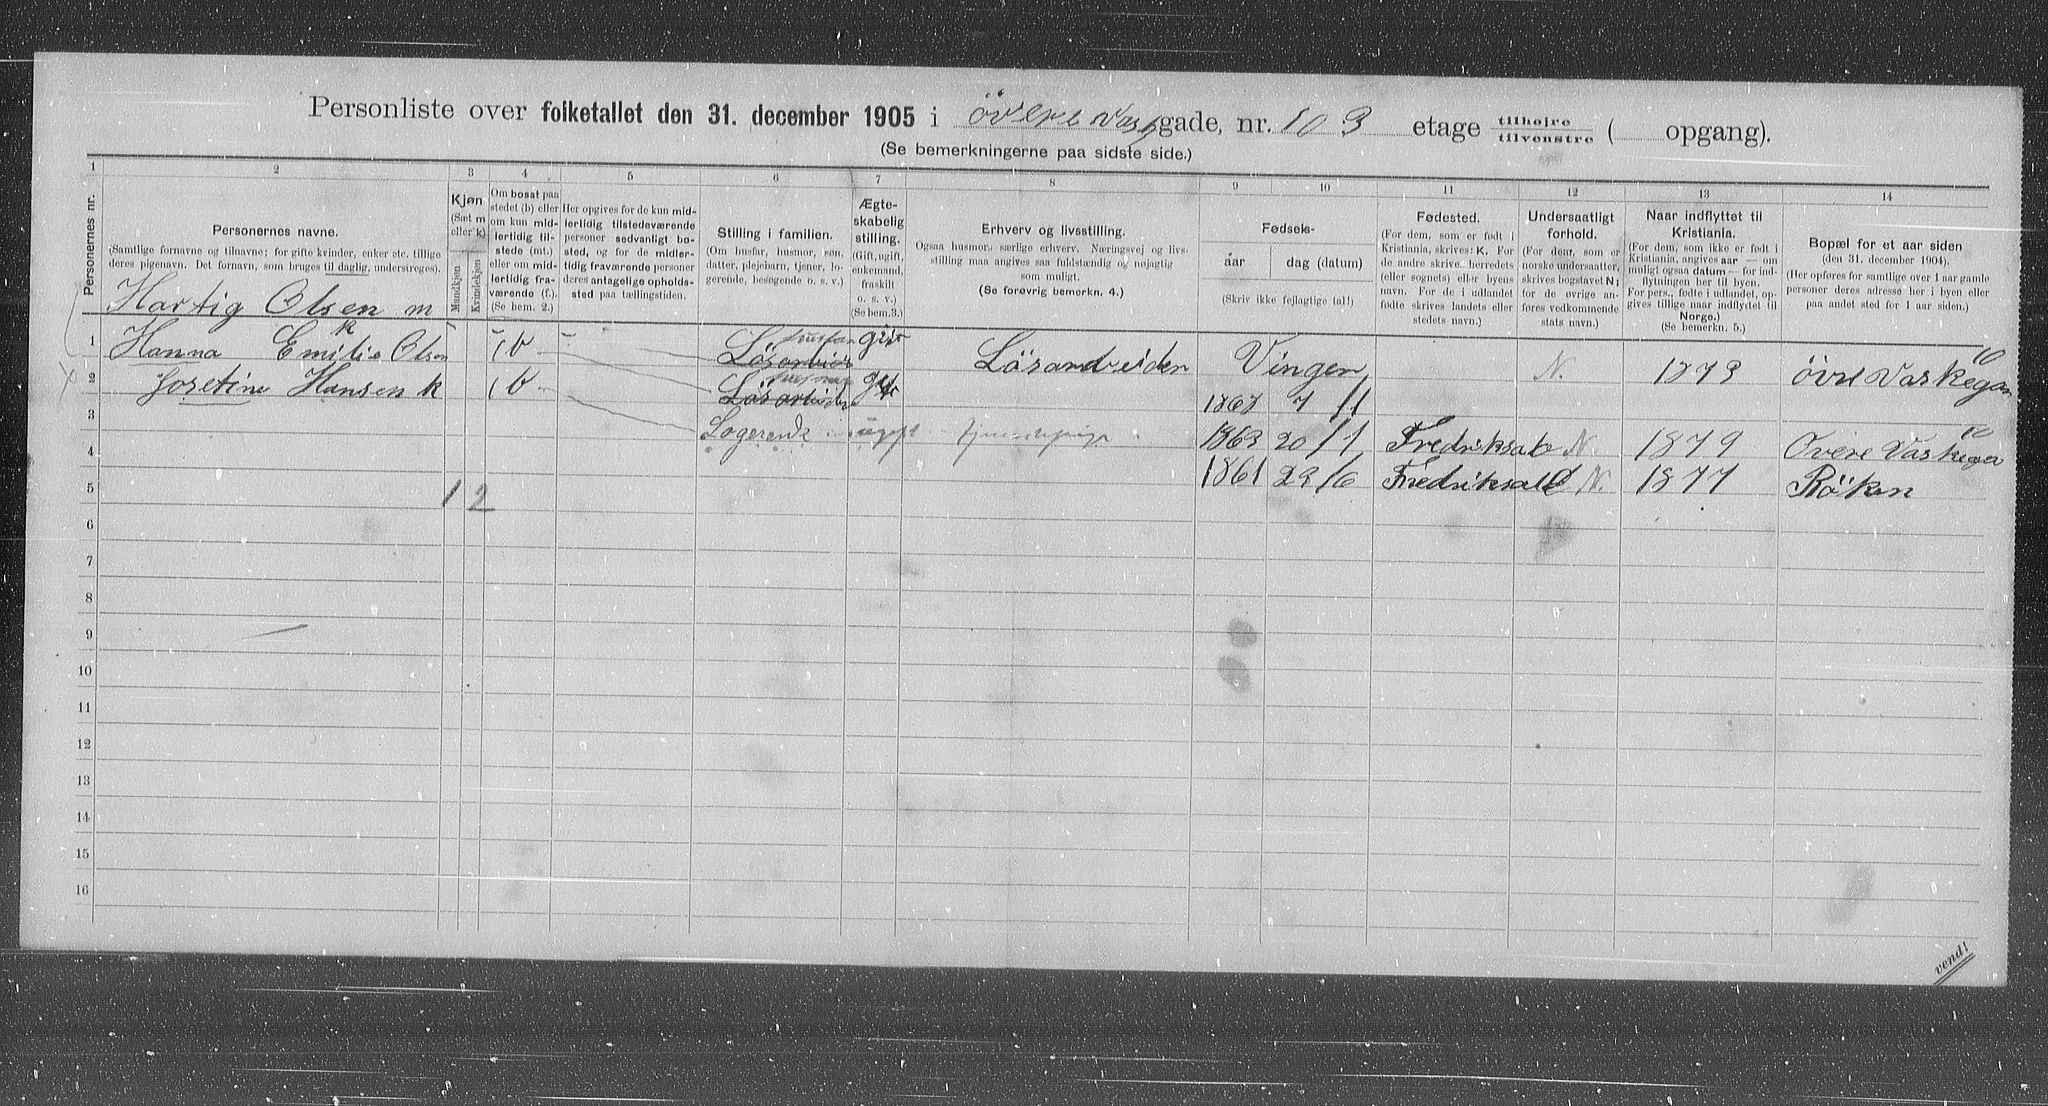 Personliste over folketallet den 31. december 1905 i övere Vask gade, nr. 10 3 etage tilhøjre tilvenstre ( opgang).
(Se bemerkningerne paa sidste side.)
1 2 3 4 5 6 7 8 9 10 11 12 13 14
Personernes nr.
Personernes navne.
(Samtlige fornavne og tilnavne; for gifte kvinder, enker etc. tillige deres pigenavn. Det fornavn, som bruges til daglig, understreges).
Kjøn.
(Sæt m eller k)
Mandkjøn
Kvindekjøn
Om bosat paa stedet (b) eller om kun midlertidig tilstede (mt.) eller om midlertidig fraværende (f.).
(Se bem. 2.)
Her opgives for de kun midlertidig tilstedeværende personer sedvanligt bosted, og for de midlertidig fraværende personer deres antagelige opholdssted paa tællingstiden.
Stilling i familien.
(Om husfar, husmor, søn, datter, plejebarn, tjener, logerende, besøgende o. s. v.)
Ægteskabelig stilling.
(Gift, ugift, enkemand, fraskilt o. s. v.)
(Se bem.3.)
Erhverv og livsstilling.
Ogsaa husmors særlige erhverv. Næringsvej og livsstilling maa angives saa fuldstændig og nøjagtig som muligt.
(Se forøvrig bemerkn. 4.)
Fødsels-
aar dag (datum)
(Skriv ikke fejlagtige tal!)
Fødested.
(For dem, som er født i Kristiania, skrives: K. For de andre skrives herredets (eller sognets) eller byens navn. For de i udlandet fødte skrives landets eller stedets navn.)
Undersaatligt forhold.
(For dem, som er norske undersaatter, skrives bogstavet N; for de øvrige anføres vedkommende stats navn.)
Naar indflyttet til Kristiania.
(For dem, som ikke er født i Kristiania, angives aar — om muligt ogsaa datum — for indflytningen her til byen. For pers., fødte i udlandet, opgives tillige naar indflyttet til Norge.)
(Se bemerkn. 5.)
Bopæl for et aar siden
(den 31. december 1904).
(Her opføres for samtlige over 1 aar gamle personer deres adresse her i byen eller paa andet sted for 1 aar siden.)
Hartig Olsen m
1 Hanna Emilie Olsen k b husfar gift Lösarbeider Vingen N. 1873 övre Vaskegan 10
2 Josetine Hansen k b husmor gift 1868 7/1
3 Logerende ugift 1863 20/1 Fredriksald N. 1879 Overe Vaskega 10
4 1861 29/6 Fredriksald N. 1877 Röken
5 1 2
6
7
8
9
10
11
12
13
14
15
16
vend!